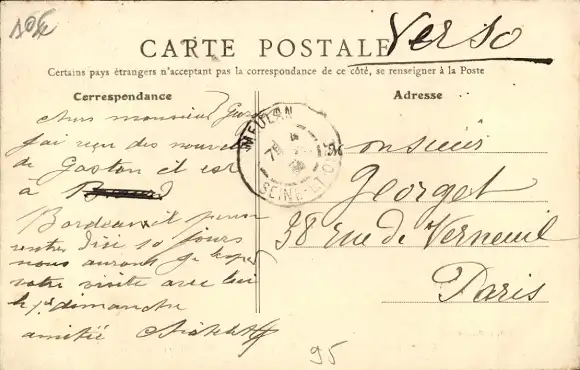 Verso
CARTE POSTALE
Certains pays étrangers n'acceptant pas la correspondance de ce côté, se renseigner à la Poste
Correspondance
Adresse
cher monsieur
j'ai reçu des nouvel
de Gaston il est
à
Bordeaux il pense
rentrer d'ici 10 jours
nous aurons je
votre visite avec lui
le 1er dimanche
amitié
MEULAN
SEINE-ET-O
Monsieur
Georget
38 rue de Verneuil
Paris
95